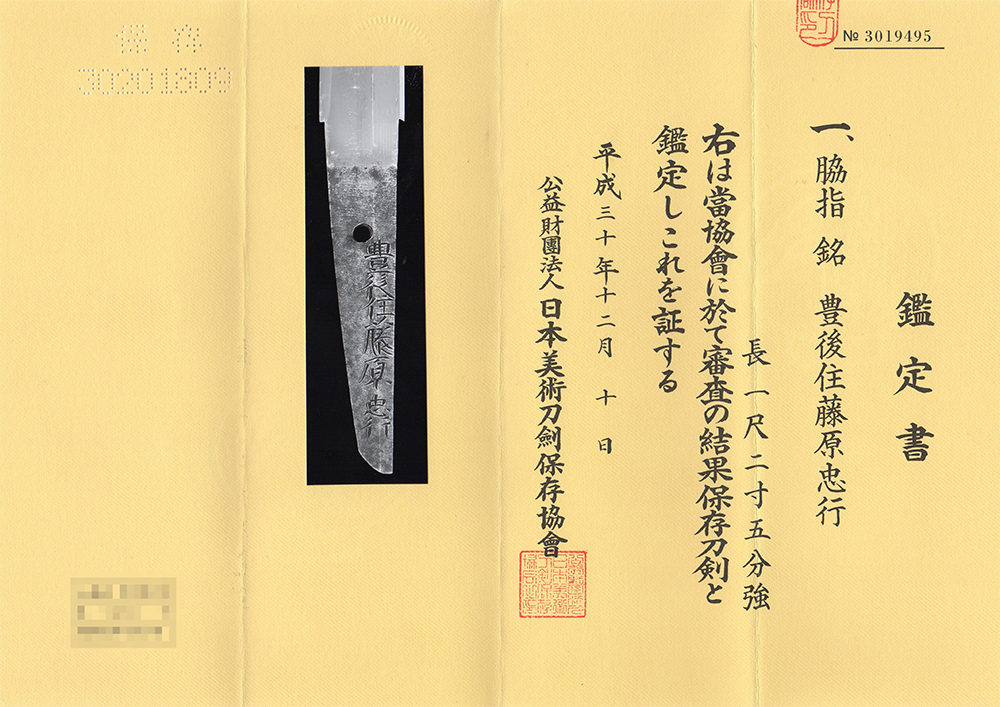 № 3019495
鑑定書
一、脇指 銘 豊後住藤原忠行
長 一尺二寸五分強
右は當協會に於て審査の結果保存刀剣と
鑑定しこれを証する
平成三十年十二月 十 日
公益財團法人 日本美術刀劍保存協會
豊後住藤原忠行
保存
30201809